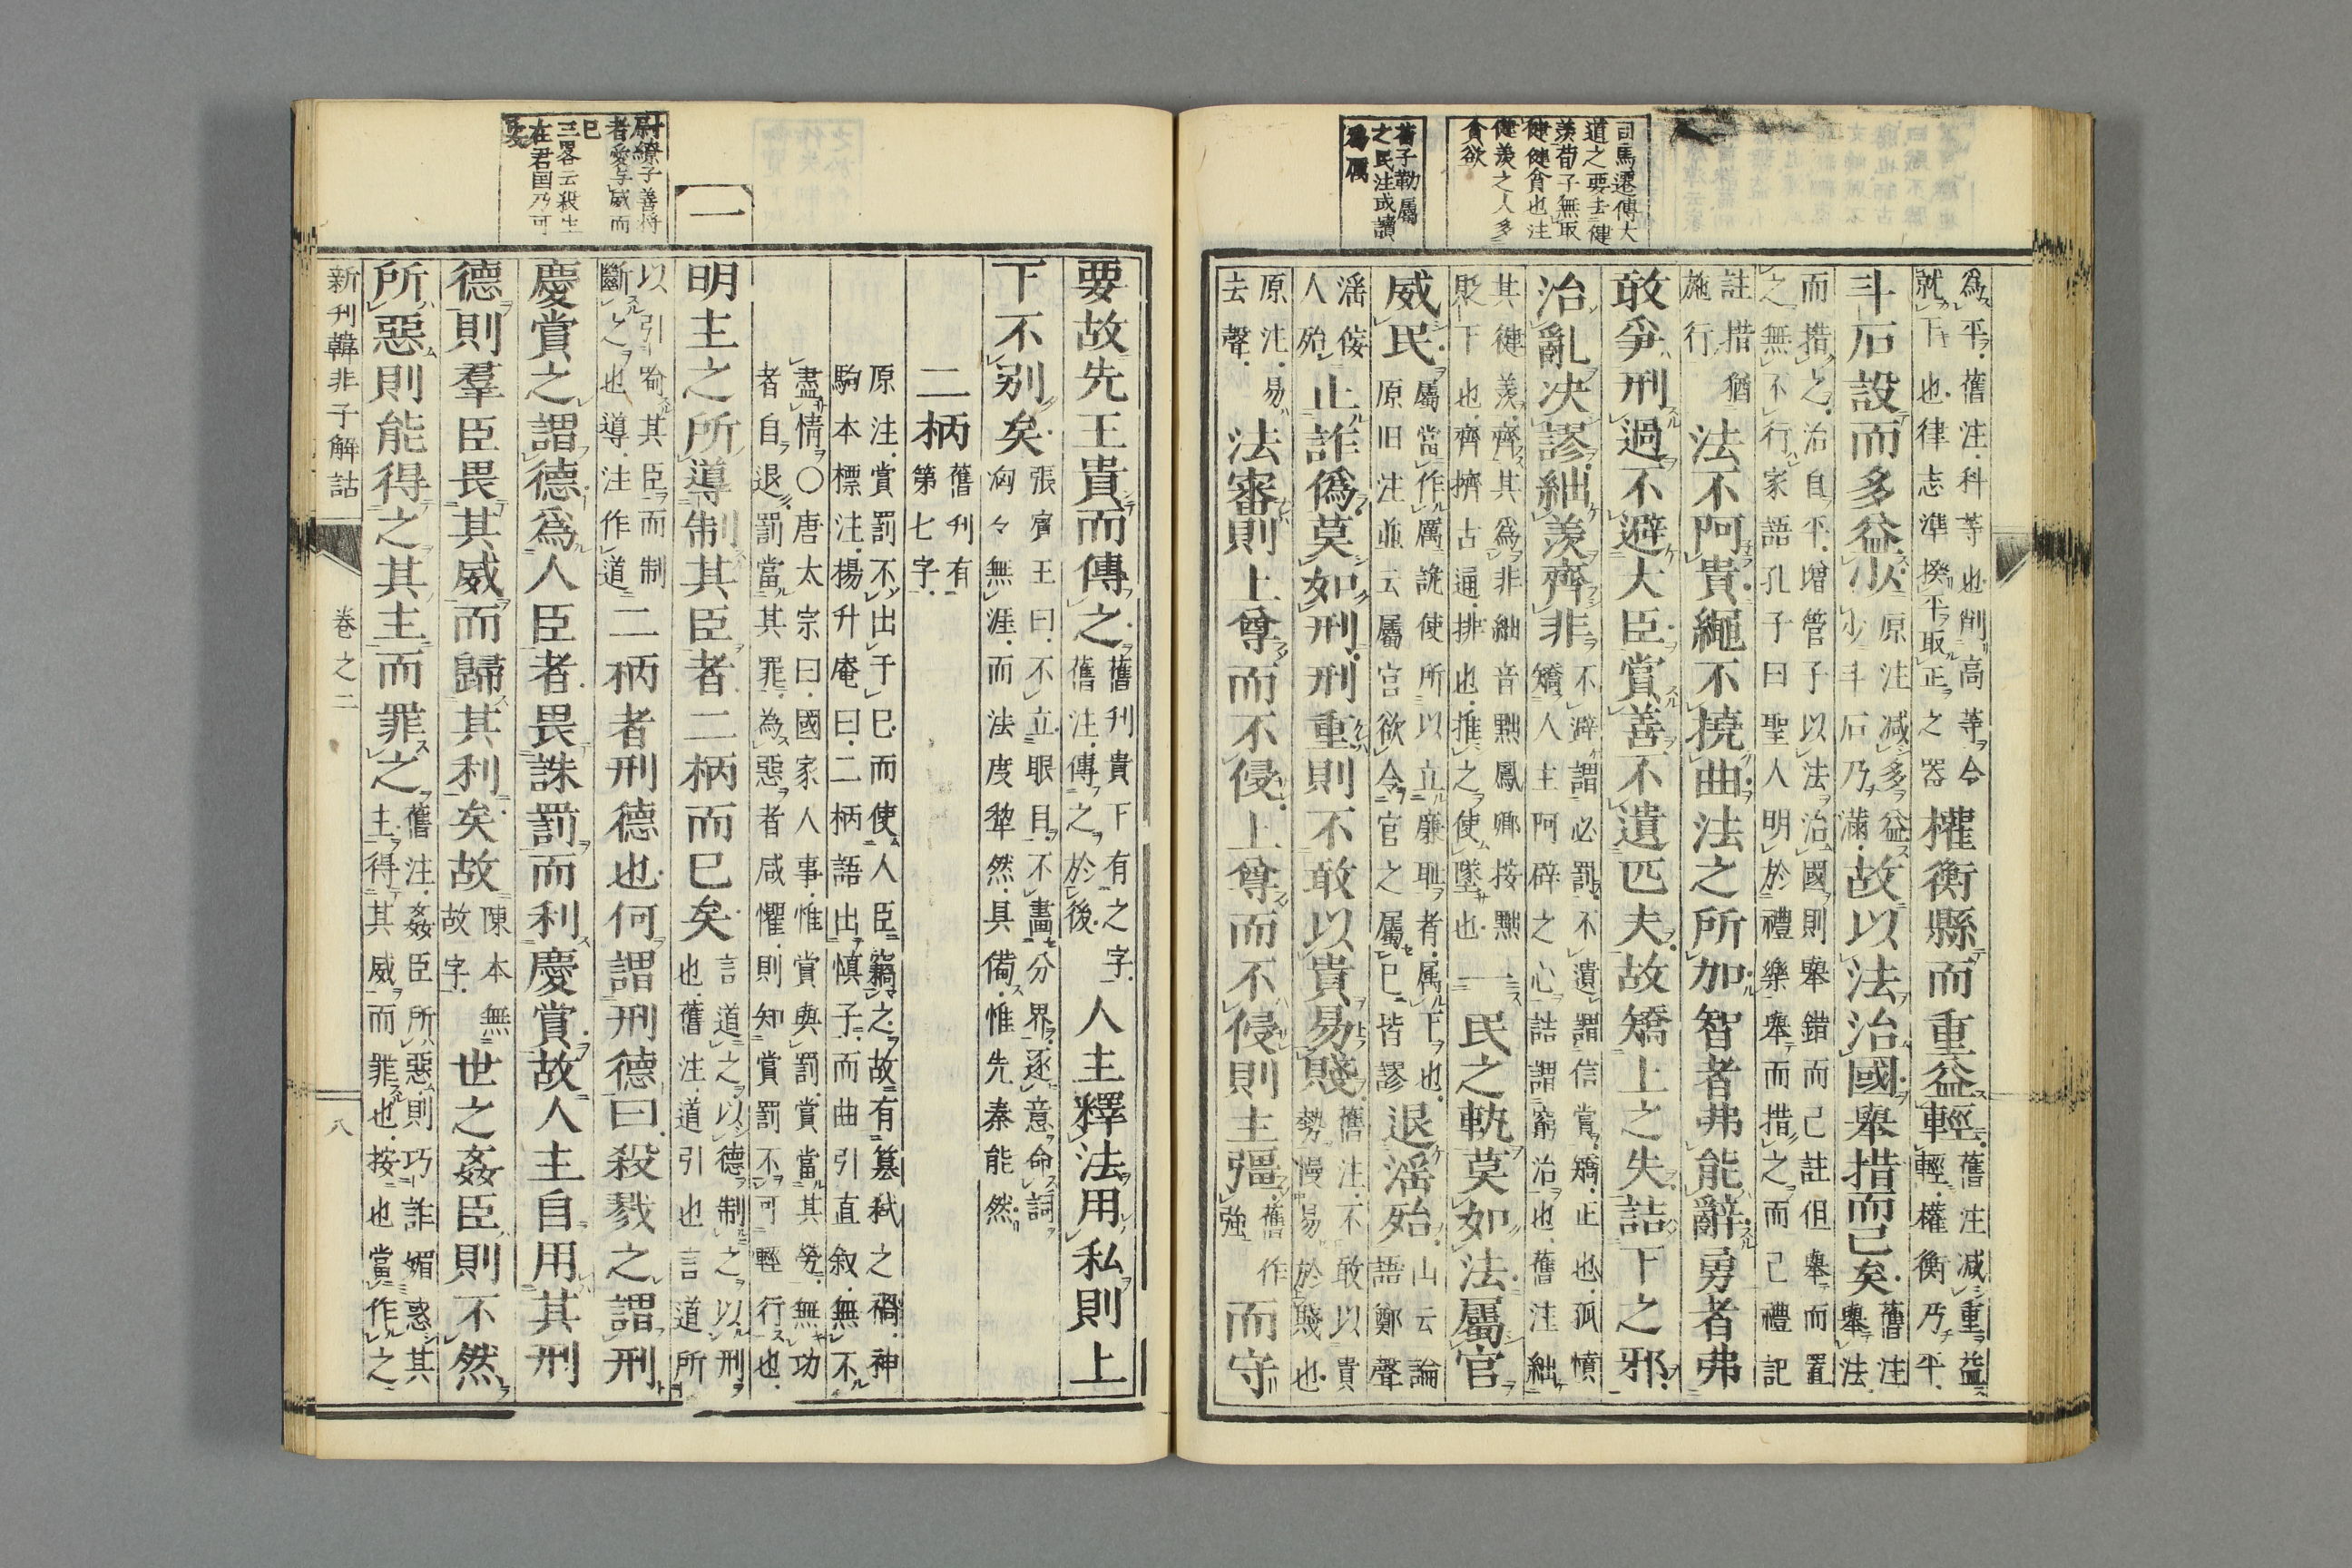 司馬遷傳大
道之要去健
羨荀子無取
健健貪也注
健羨之人多
貪欲
荀子勒屬
之民注或讀
為厲
為平舊注科等也削高等令
就下也律志準揆平取正之器
權衡縣而重益輕
舊注減重益
輕權衡乃平
斗石設而多益少
原注減多益
少斗石乃滿
故以法治國舉措而已矣
舊注
舉法
而措之治自平增管子以法治國則舉錯而已註但舉而置
之無不行家語孔子曰聖人明於禮樂舉而措之而已禮記
註措猶
施行
法不阿貴繩不撓曲法之所加智者弗能辭勇者弗
敢爭刑過不避大臣賞善不遺匹夫故矯上之失詰下之邪
治亂決謬絀羨齊非
不避謂必罰不遺謂信賞矯正也孤憤
矯人主阿辟之心詰謂窮治也舊注絀
其健羨齊其為非絀音黜鳳卿按黜
貶下也齊擠古通排也推之使墜也
一民之軌莫如法屬官
威民
屬當作厲詵使所以立廉恥者属下也
原旧注並云屬官欲令官之屬已皆謬
退滛殆
山云論
語鄭聲
滛佞
人殆
止詐偽莫如刑刑重則不敢以貴易賤
舊注不敢以貴
勢慢易於賤也
原注易
去聲
法審則上尊而不侵上尊而不侵則主彊
舊作
強
而守
要故先王貴而傳之
舊刊貴下有之字
舊注傳之於後
人主釋法用私則上
下不別矣
張賓王曰不立眼目不畫分界逐意命詞
匈々無涯而法度犂然具備惟先秦能然
二柄
舊刊有
第七字
原注賞罰不出于已而使人臣竊之故有篡弑之禍神
駒本標注楊升庵曰二柄語出慎子而曲引直叙無不
盡情○唐太宗曰國家人事惟賞與罰賞當其勞無功
者自退罰當其罪為惡者咸懼則知賞罰不可輕行也
明主之所導制其臣者二柄而巳矣
言道之以德制之以刑
也舊注道引也言道所
以引喻其臣而制
斷之也導注作道
二柄者刑德也何謂刑德曰殺戮之謂刑
慶賞之謂德為人臣者畏誅罰而利慶賞故人主自用其刑
德則羣臣畏其威而歸其利矣故
陳本無
故字
世之姦臣則不然
所惡則能得之其主而罪之
舊注姦臣所惡則巧詐媚惑其
主得其威而罪也按也當作之
一
尉繚子善將
者愛与威而
已
三畧云殺生
在君国乃可
安
新刊韓非子解詁
卷之二
八